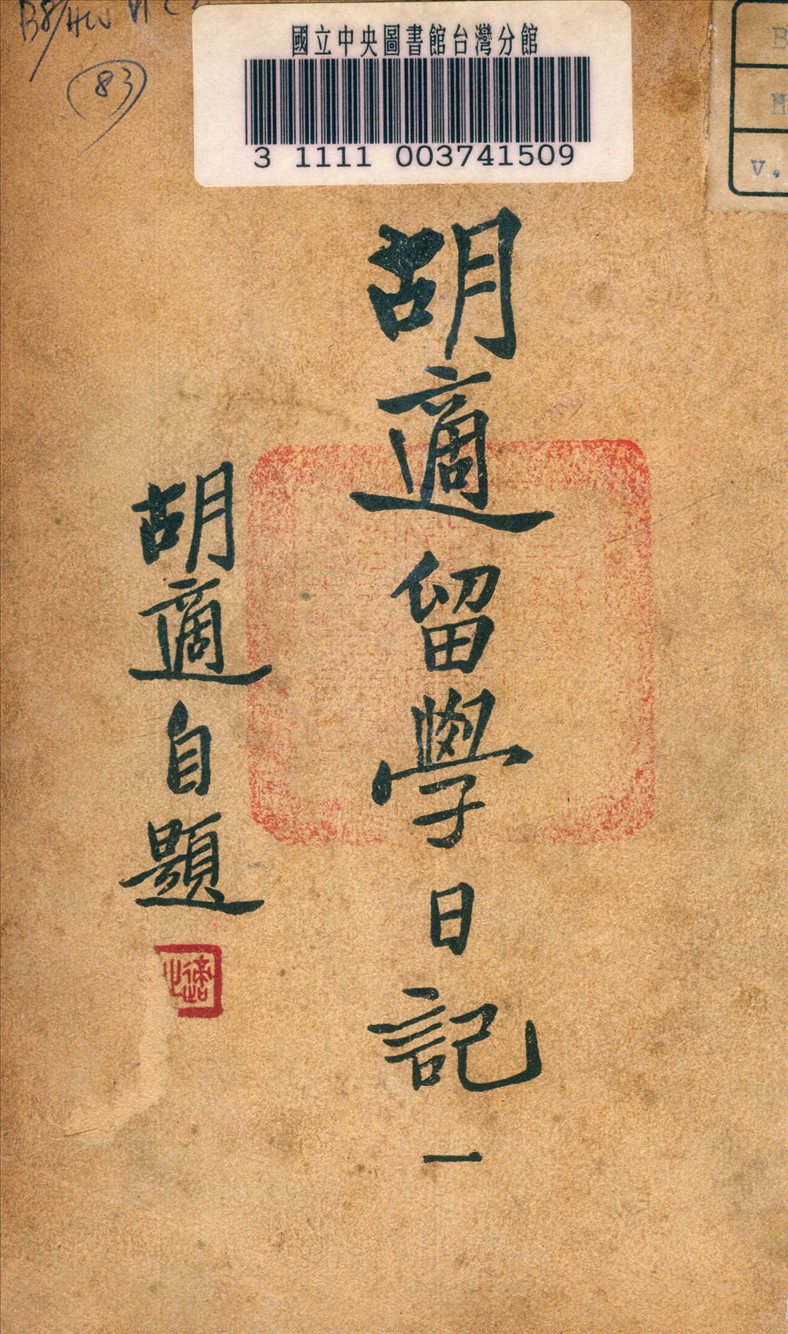 83
國立中央圖書館台灣分館
3 1111 003741509
v.
胡適留學日記 一
胡適自題
適之